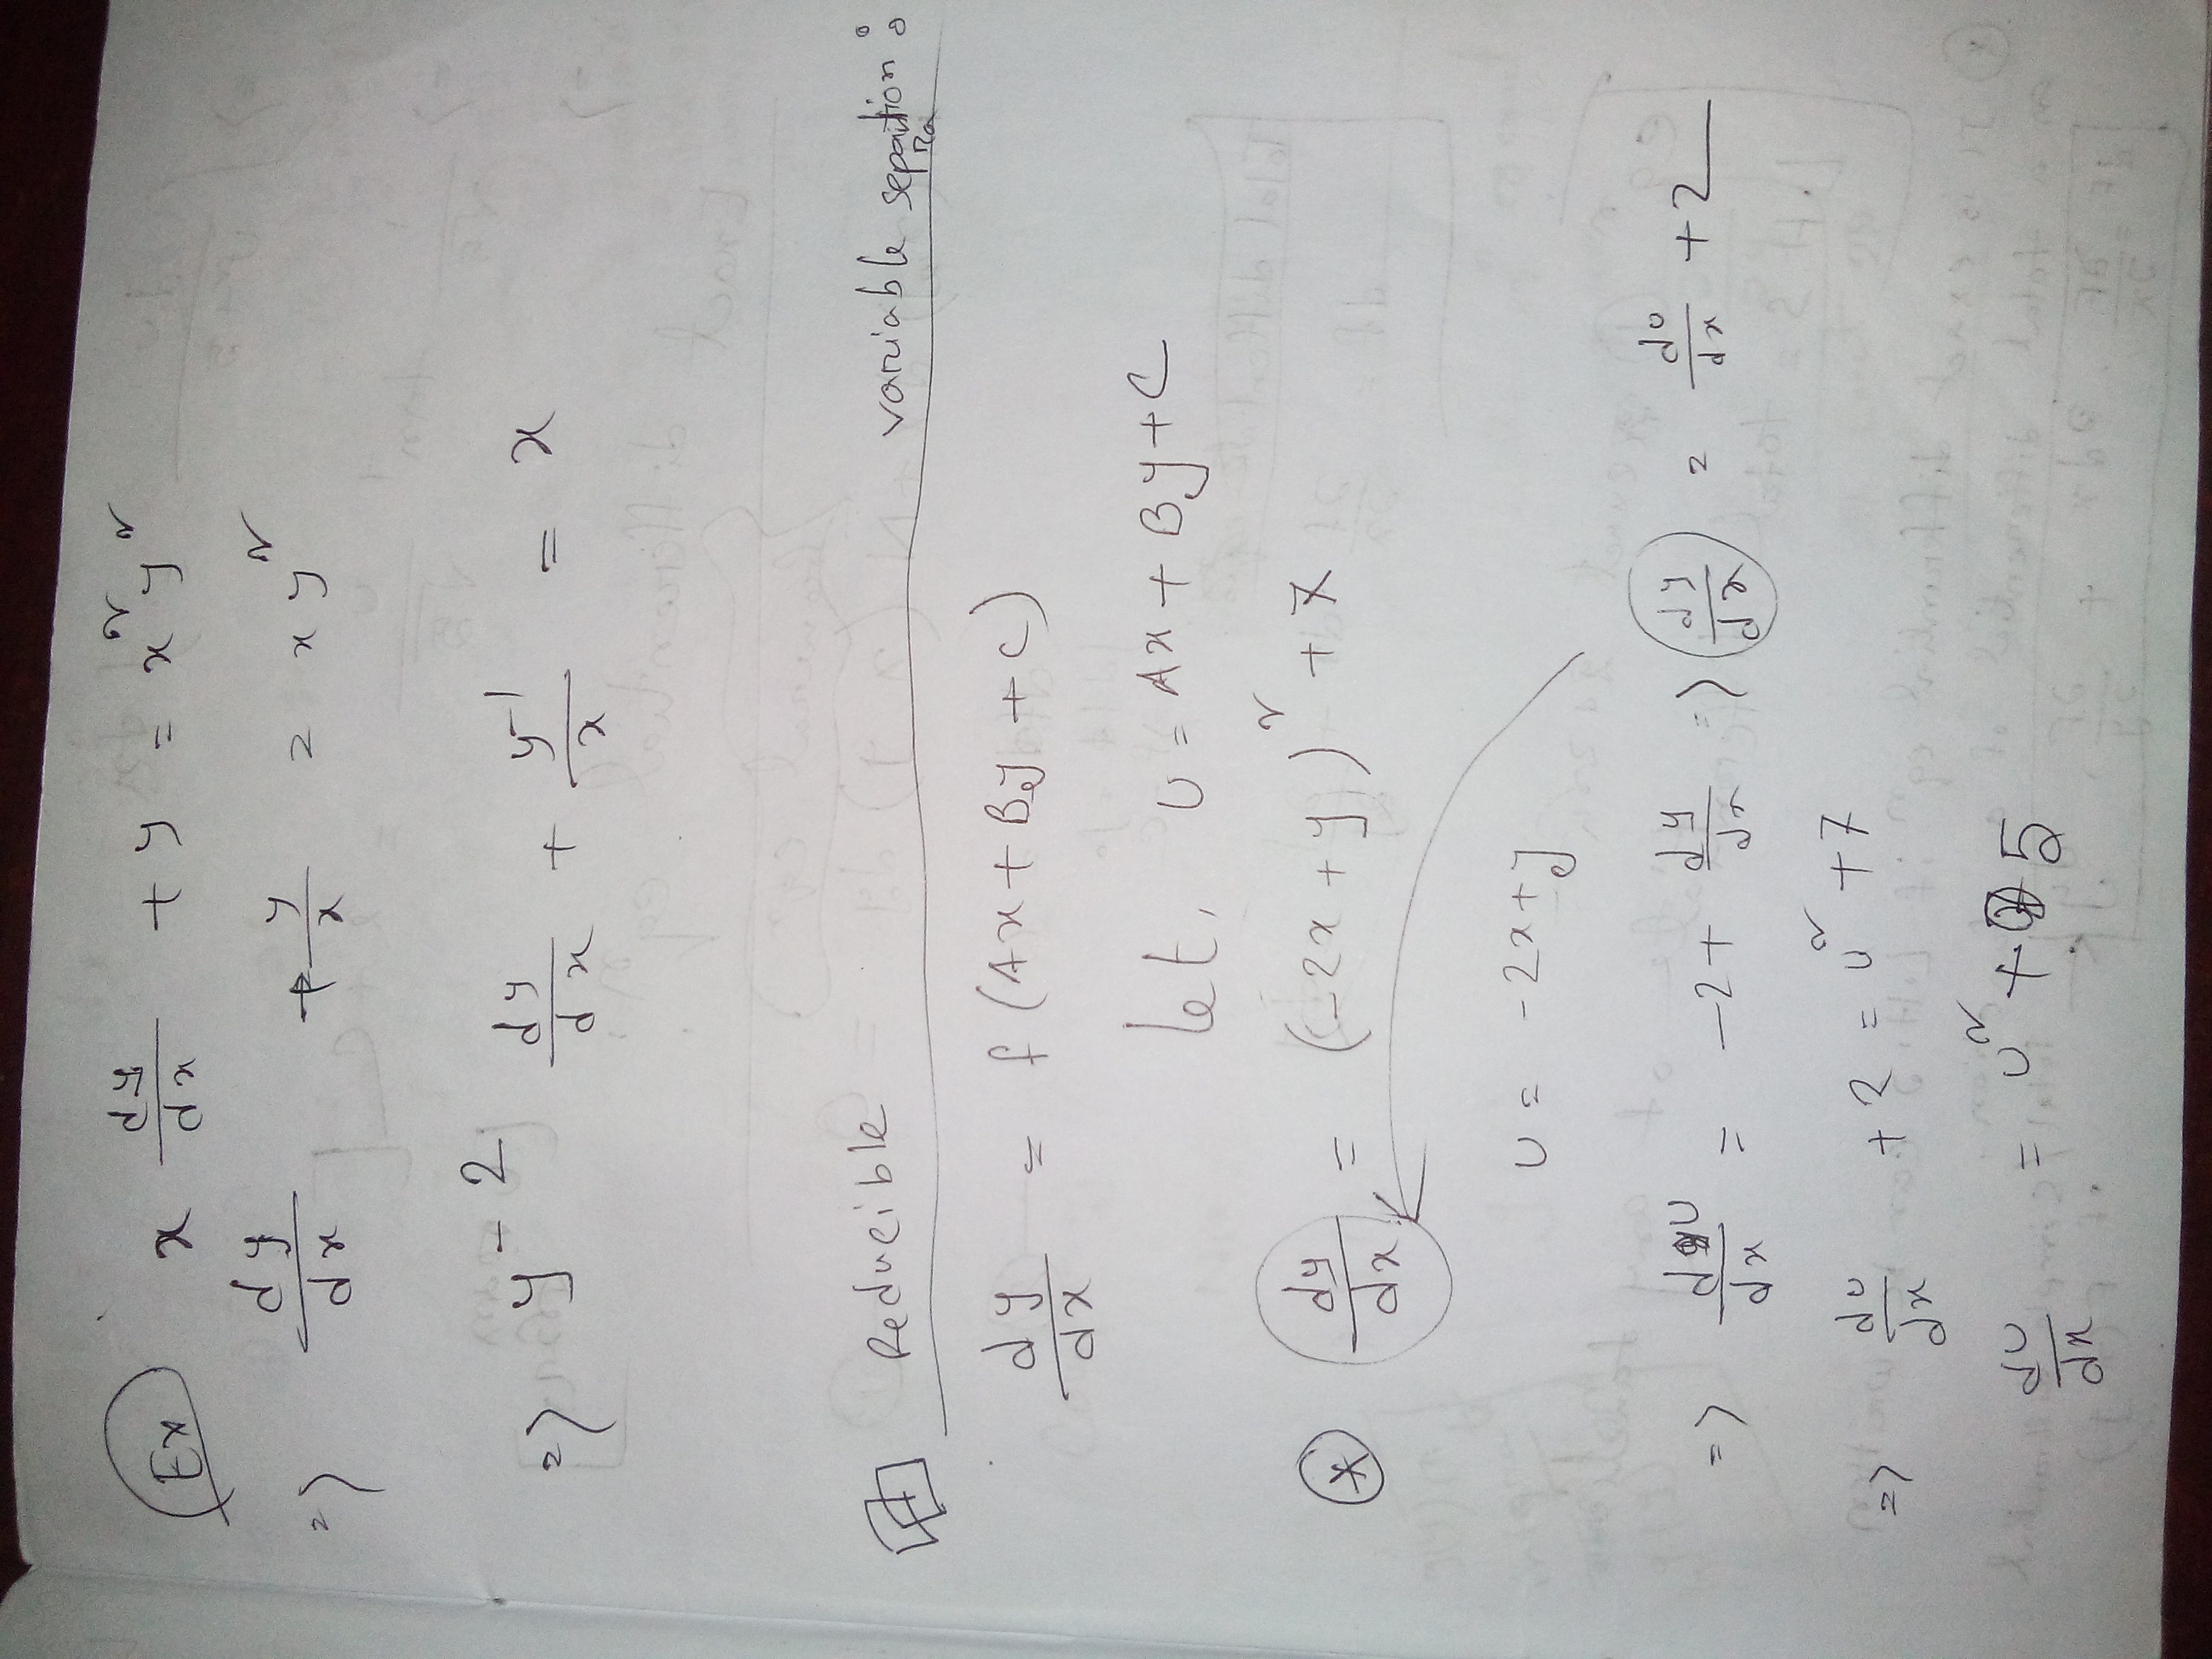 Ex x dy/dx + y = x² y²
=> dy/dx + y/x = x y²
=> y⁻² dy/dx + y⁻¹/x = x
Reducible variable separation :
dy/dx = f (Ax + By + c)
let, U = Ax + By + c
* dy/dx = (-2x + y)² + 7
U = -2x + y
=> dU/dx = -2 + dy/dx => dy/dx = dU/dx + 2
=> dU/dx + 2 = U² + 7
dU/dx = U² + 5